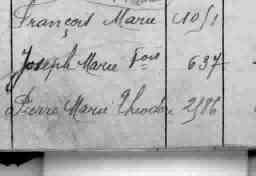 François Marie 1051
Joseph Marie Fois 637
Pierre Marie Théodore 2986